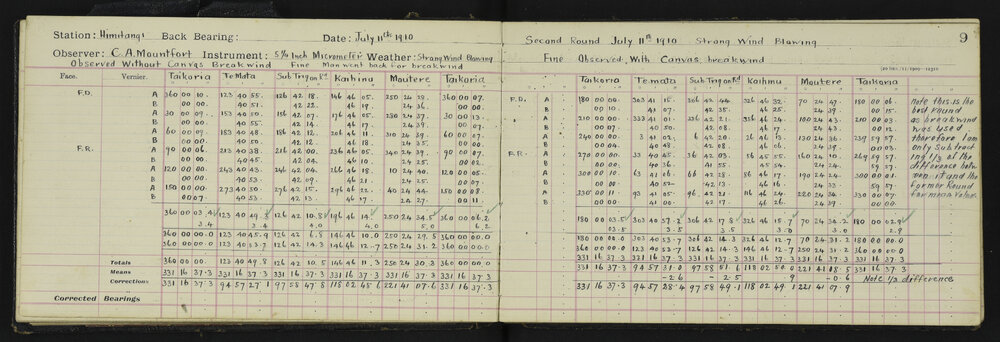 Station: Himitangi Back Bearing: Date: July 11th 1910
Observer: C.A. Mountfort Instrument: 5 9/10 Inch Micrometer Weather: Strong Wind Blowing
Observed Without Canvas Breakwind Fine Man went back for breakwind
Face. Vernier. Taikoria Te Mata Sub Trig on Rd Kaihinu Moutere Taikoria
F.D. A 360 00 10. 123 40 55. 126 42 18. 146 46 05. 250 24 29. 360 00 07.
B 00. 40 51. 42 22. 46 19. 24 36. 00 00.
A 30 00 09. 153 40 50. 156 42 07. 176 46 05. 280 24 37. 30 00 13.
B 00 00. 40 55. 42 14. 46 17. 24 39. 00 07.
A 60 00 09. 183 40 48. 186 42 12. 206 46 11. 310 24 39. 60 00 07.
B 00 00. 40 50. 42 12. 46 18. 24 35. 00 00.
F.R. A 90 00 06. 213 40 38. 216 42 00. 236 46 05. 340 24 39. 90 00 07.
B 00 00. 40 45. 42 04. 46 10. 24 25. 00 02.
A 120 00 00. 243 40 43. 246 42 04. 266 46 18. 10 24 40. 120 00 05.
B 00 00. 40 53. 42 09. 46 21. 24 25. 00 07.
A 150 00 00. 273 40 50. 276 42 15. 296 46 22. 40 24 44. 150 00 08.
B 00 00. 40 53. 42 13. 46 17. 24 27. 00 11.
360 00 03.4 123 40 49.8 126 42 10.8 146 46 14.0 250 24 34.5 360 00 06.2
3.4 3.4 4.0 4.0 5.0 6.2
360 00 00.0 123 40 45.9 126 42 6.8 146 46 10.0 250 24 29.5 360 00 00.0
360 00 00.0 123 40 53.7 126 42 14.3 146 46 12.7 250 24 31.2 360 00 00.0
Totals 360 00 00. 123 40 49.8 126 42 10.5 146 46 11.3 250 24 30.3 360 00 00.0
Means 331 16 37.3 331 16 37.3 331 16 37.3 331 16 37.3 331 16 37.3 331 16 37.3
Corrections 331 16 37.3 94 57 27.1 97 58 47.8 118 02 48.6 221 41 07.6 331 16 37.3
Corrected Bearings
Second Round July 11th 1910 Strong Wind Blowing 9
Fine Observed, With Canvas breakwind
Taikoria Te mata Sub Trig on Rd Kaihinu Moutere Taikoria
F.D. A 180 00 00. 303 41 15. 306 42 44. 326 46 32. 70 24 47. 180 00 06. note this is the
B 00 10. 41 07. 42 35. 46 25. 24 39. 00 15. best Round
A 210 00 00. 333 41 01. 336 42 21. 356 46 24. 100 24 43. 210 00 03. as breakwind
B 00 07. 40 50. 42 08. 46 17. 24 43. 00 12. was used
A 240 00 00. 3 41 02. 6 42 20. 26 46 13. 130 24 36. 239 59 57. therefore I am
B 00 04. 40 48. 42 08. 46 06. 24 39. 00 03. only Subtract
F.R. A 270 00 00. 33 40 45. 36 42 03. 56 45 55. 160 24 10. 269 59 57. ing 1/3 of the
B 00 04. 40 36. 41 55. 45 54. 24 24. 59 57. difference betw
A 300 00 10. 63 41 06. 66 42 28. 86 46 17. 190 24 24. 300 00 01. een it and the
B 00 00. 40 52. 42 13. 46 16. 24 33. 59 57. former Round
A 330 00 11. 93 41 05. 96 42 21. 116 46 24. 220 24 34. 330 00 07. for mean values
B 00 00. 41 00. 42 17. 46 26. 24 39. 00 00.
180 00 03.5 303 40 57.2 306 42 17.8 326 46 15.7 70 24 34.2 180 00 02.9
3.5 3.5 3.5 3.0 3.0 2.9
180 00 00.0 303 40 53.7 306 42 14.3 326 46 12.7 70 24 31.2 180 00 00.0
360 00 00.0 123 40 53.7 126 42 14.3 146 46 12.7 250 24 31.2 360 00 00.0
331 16 37.3 331 16 37.3 331 16 37.3 331 16 37.3 331 16 37.3 331 16 37.3
331 16 37.3 94 57 31.0 97 58 51.6 118 02 50.0 221 41 08.5 331 16 37.3
-2.6 -2.5 -0.6 Note 1/3 difference
331 16 37.3 94 57 28.4 97 58 49.1 118 02 49.1 221 41 07.9